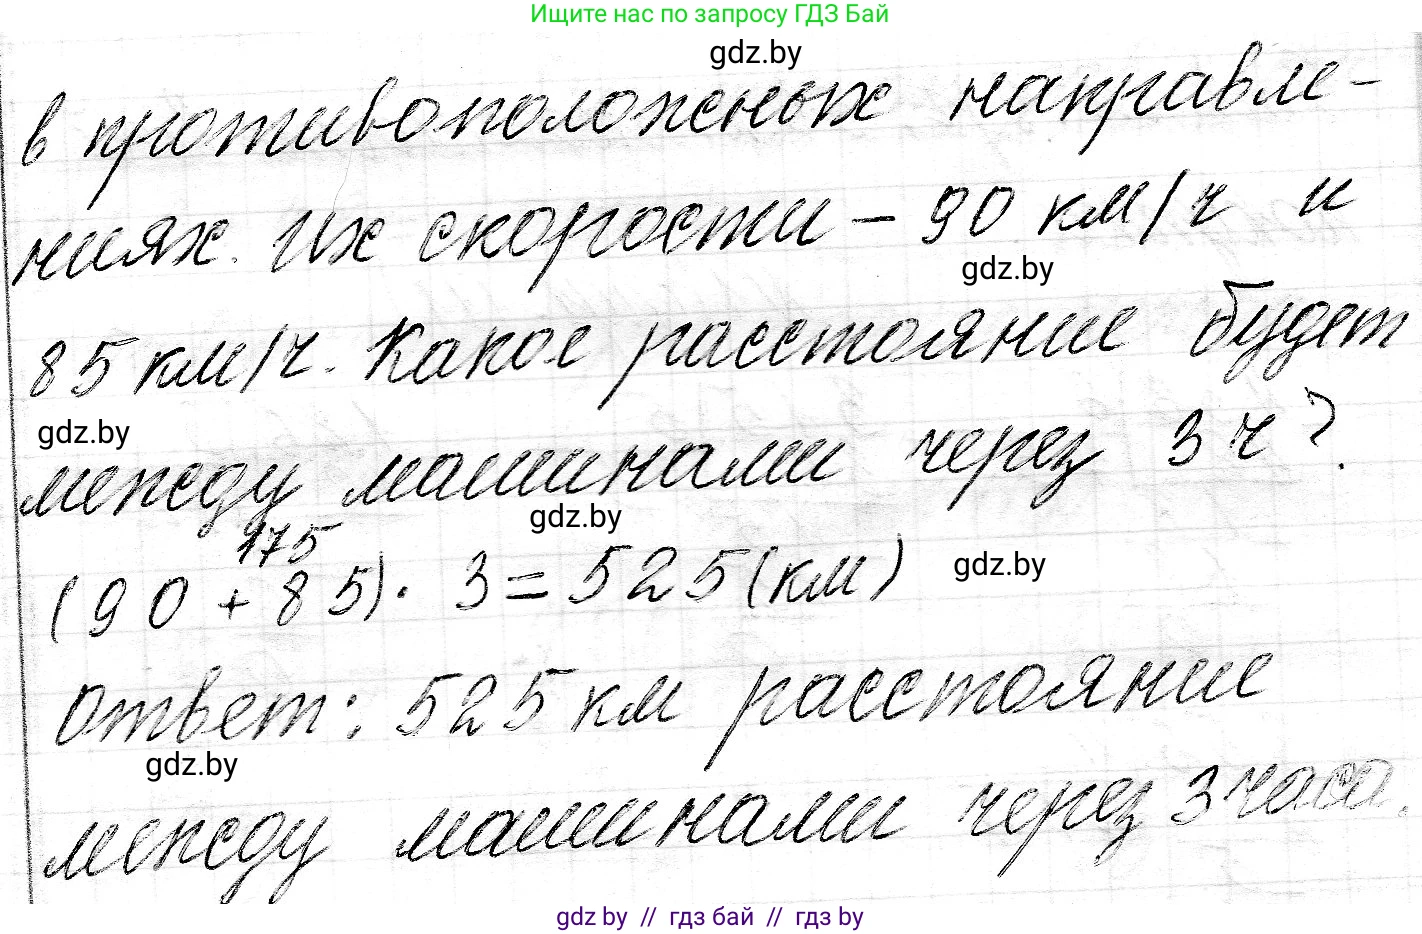 Ищите нас по запросу ГДЗ Бай
gdz.by
в противоположных направле-
ниях. Их скорости – 90 км/ч и
gdz.by
85 км/ч. Какое расстояние будет
gdz.by
между машинами через 3 ч?
gdz.by
175
(90 + 85) · 3 = 525 (км)
gdz.by
Ответ: 525 км расстояние
gdz.by
между машинами через 3 часа.
gdz by // гдз бай // гдз by